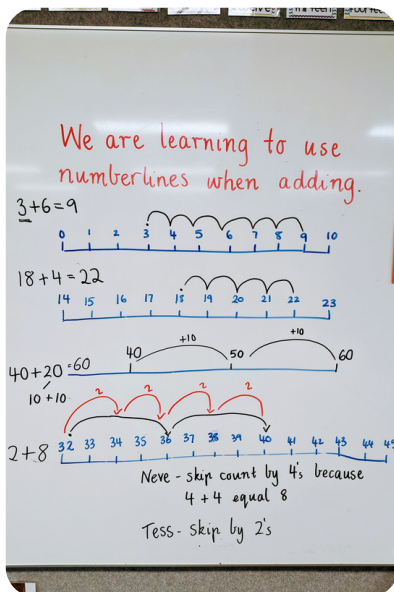 We are learning to use
numberlines when adding.
3+6=9
0 1 2 3 4 5 6 7 8 9 10
18+4=22
14 15 16 17 18 19 20 21 22 23
+10 +10
40 50 60
40+20=60
10+10
2 2 2 2
32 33 34 35 36 37 38 39 40 41 42 43 44 45
2+8
Neve - skip count by 4's because
4+4 equal 8
Tess- skip by 2's